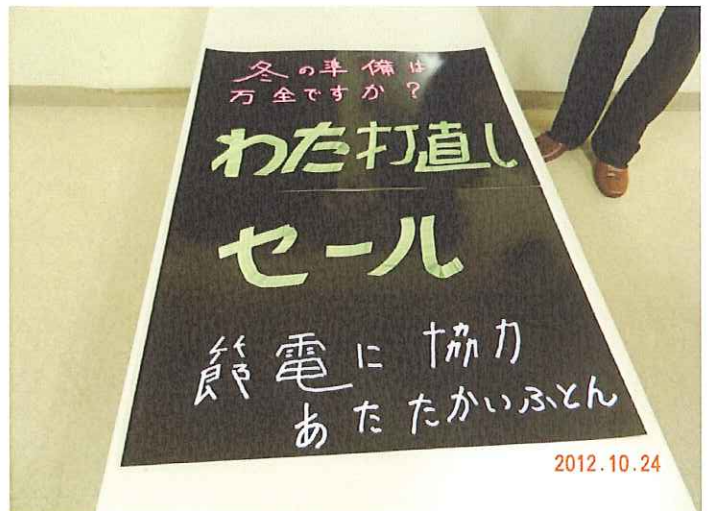 冬の準備は
万全ですか？
わた打直し
セール
節電に協力
あたたかいふとん
2012.10.24